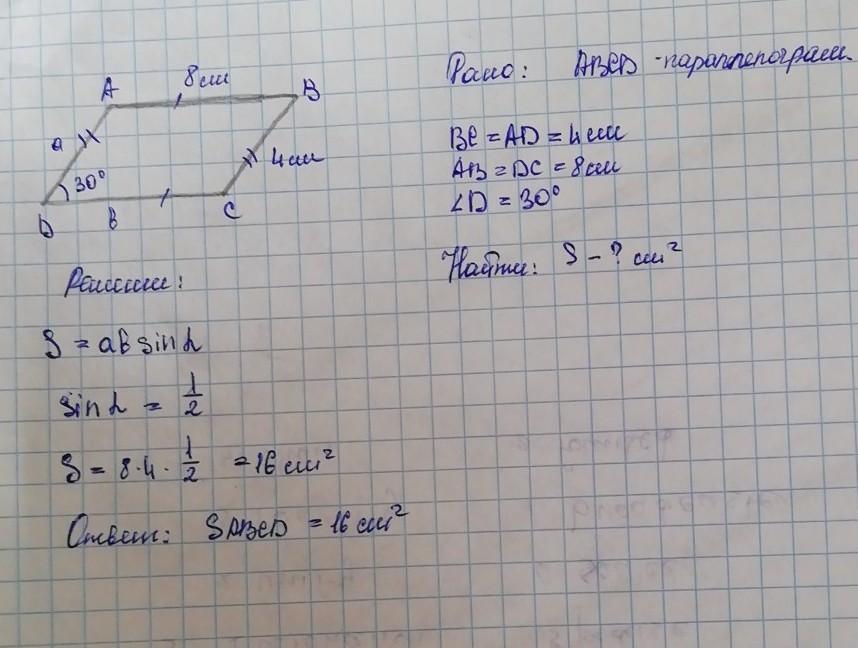 8см
A B
a 4см
30°
D в C
Дано: ABCD - параллелограмм.
BC = AD = 4см
AB = DC = 8см
∠D = 30°
Найти: S - ? см²
Решение:
S = ab sin α
sin α = 1/2
S = 8·4·1/2 = 16 см²
Ответ: SABCD = 16 см²